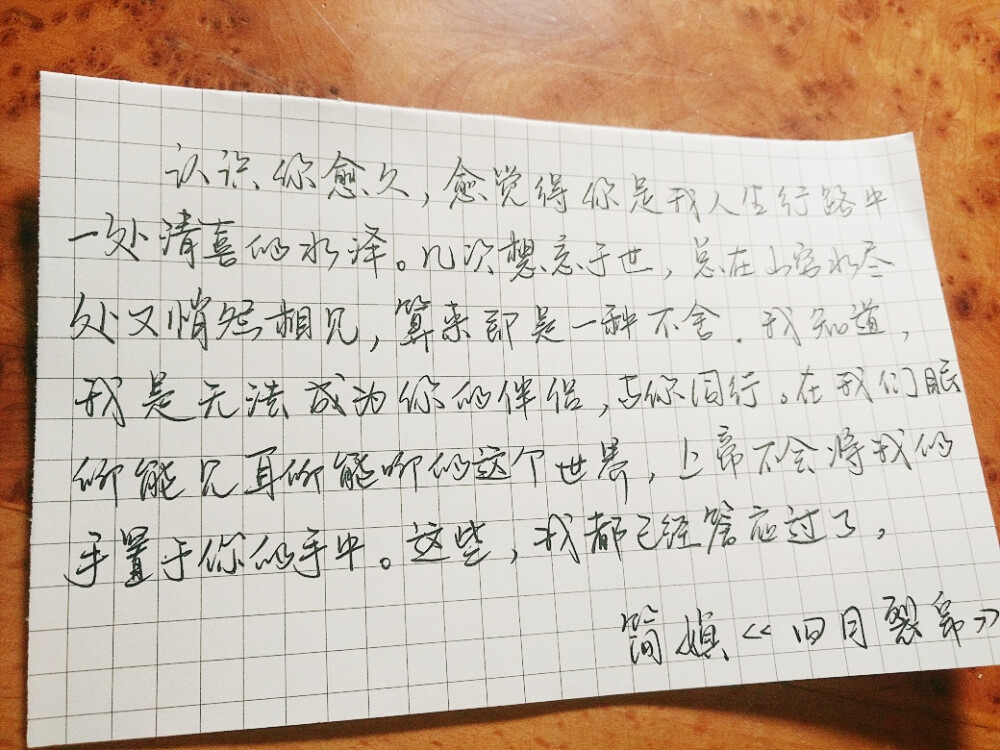 认识你愈久，愈觉得你是我人生行路中
一处清喜的水泽。几次想忘于世，总在山穷水尽
处又悄然相见，算来即是一种不舍。我知道，
我是无法成为你的伴侣，与你同行。在我们眼
所能见耳所能听的这个世界，上帝不会将我的
手置于你的手中。这些，我都已经答应过了。
简媜《四月裂帛》